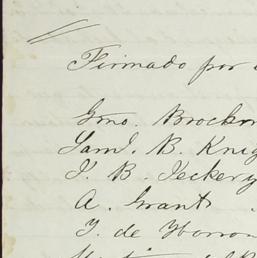 Firmado por
Gmo. Brock
Saml. B. Knig
J. B. Jeckery
A. Grant
Y. de